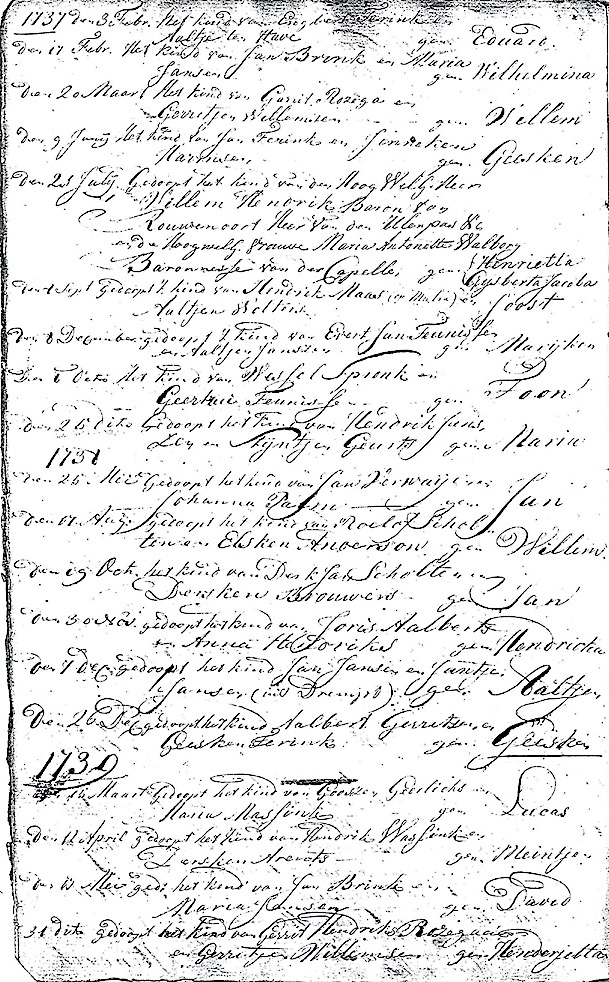 1737 den 3 Febr. Het kind van Engbert Ferink en
Aaltje ten Have gen Eduard.
den 17 Febr. Het kind van Jan Brink en Maria
Jansen gen Wilhelmina
den 20 Maart Het kind van Gerrit Rozega en
Gerritjen Willemsen gen Willem
den 9 Junij Het kind van Jan Ferink en Janneken
Harmsen gen Geesken
den 21 July Gedoopt het kind van den Hoog Welg. Heer
Willem Hendrik Baron van
Rouwenoort Heer van den Ulenpas &c
en de Hoogwelg. Vrouwe Maria Antonetta Walborg
Baronnesse van der Capelle, gen Henrietta
Gysberta Jacoba
den 1 Sept gedoopt 't kind van Hendrik Maas en
Aaltjen Wolters Joost
den 8 December gedoopt 't kind van Evert Jan Teunissen
en Aaltjen Janssen gen Marijken
den 6 Octo Het kind van Wessel Spronk en
Geertrui Teunisse gen Toon
den 26 dito Gedoopt het kind van Hendrik Jans
en Sijntjen Geurts gen Maria
1738
den 25 Mei Gedoopt het kind van Jan Verwaijen
Johanna gen Jan
den 17 Aug. gedoopt het kind van Roelof Schol
ten en Elsken Anderson gen Willem
den 19 Och. het kind van Derk Jan Scholten en
Dersken Brouwers gen Jan
den 30 Nov. gedoopt het kind van Joris Aalberts
en Anna Hendriks gen Hendricka
den 7 Dec. gedoopt het kind Jan Jansen en Jantjen
Jansen gen Aaltjen
den 26 Dec gedoopt het kind Aalbert Gerritsen en
Geesken Ferink gen Geesken
1739
Maart Gedoopt het kind van Goossen Geerlichs en
Maria Massink gen Lucas
den 12 April gedoopt het kind van Hendrik Wassink en
Dersken Arents gen Meintjen
den 13 Mei ged: het kind van Jan Brink en
Maria Jansen gen David
31 dito gedoopt het kind van Gerrit Hendriks Rozegaar
en Gerritjen Willemsen gen Henderjetta